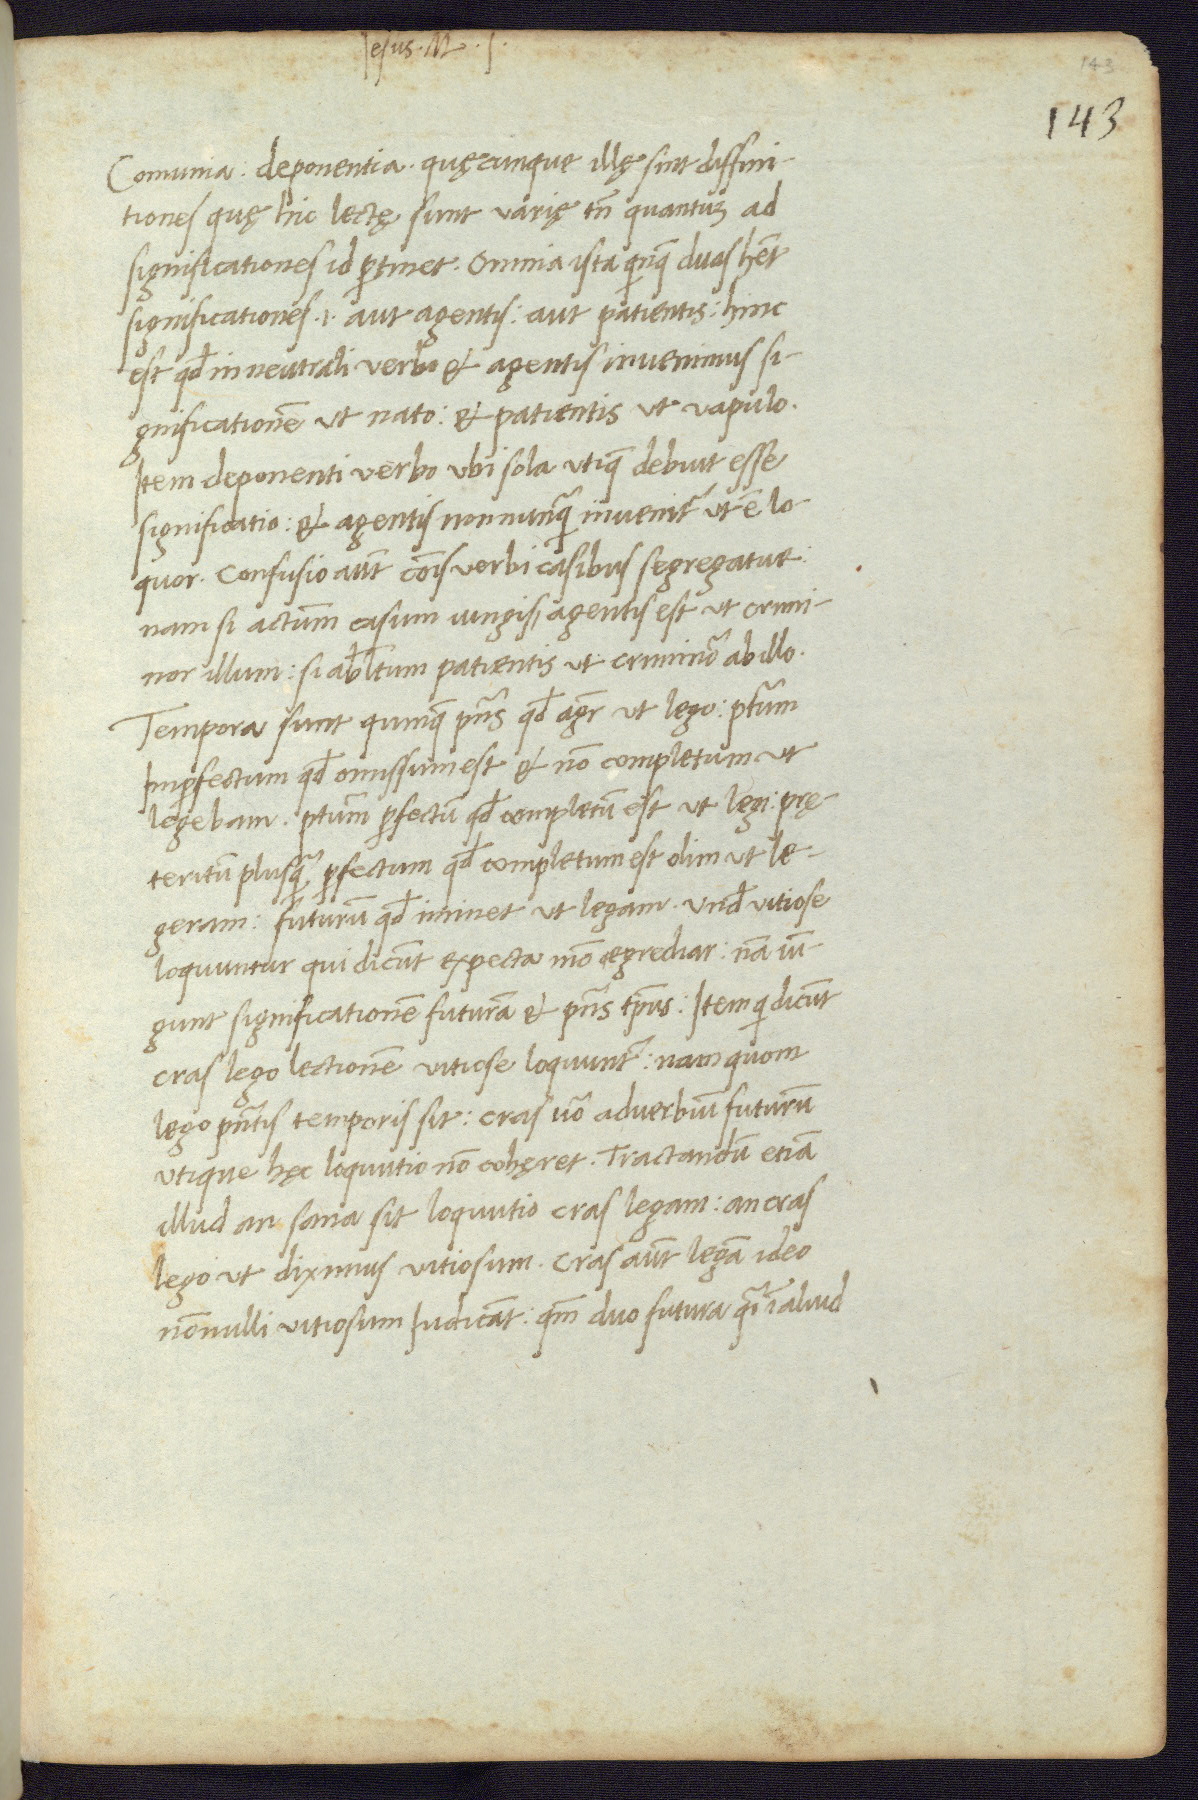 Jesus. M. S.
143
143
Comunia: deponentia. quęcunque illę sint diffini-
tiones quę hic lectę sunt varię tñ quantuʒ ad
significationes id ꝑtinet. Omnia ista quinq̃ duas hẽt
significationes .i. aut agentis: aut patientis: hinc
est qđ in neutrali verbo & agentis inuenimus si-
gnificationẽ ut nato: & patientis ut vapulo.
Item deponenti verbo ubi sola utiq̃ debuit esse
significatio: & agentis nonnunq̃ inuenit̃ ut ẽ lo-
quor. Confusio aũt cõis verbi casibus segregatur:
nam si actũm casum iungis, agentis est ut crimi-
nor illum: si abl̃tum patientis ut criminor̃ ab illo.
Tempora sunt quinq̃ pñs qđ agit̃ ut lego: pt̃um
Imꝑfectum qđ omissum est & nõ completum ut
legebam. pt̃um ꝑfectũ qđ completũ est ut legi: prę-
teritũ plusq̃ ꝑfectum qđ completum est olim ut le-
geram: futurũ qđ iminet ut legam. Unđ vitiose
loquuntur qui dicũt expecta mõ egrediar: nã iũ-
gunt significationẽ futurã & pñs tp̃us: Item qui dicũt
cras lego lectionẽ vitiose loquunt̃: nam quom
lego pñtis temporis sit: cras uõ aduerbiũ futurũ
utique hęc loquutio nõ cohęret. Tractandũ etiã
illud an sana sit loquutio cras legam: an cras
lego ut diximus vitiosum. Cras aũt legã ideo
nõnulli vitiosum Iudicãt: qm̃ duo futura aliud